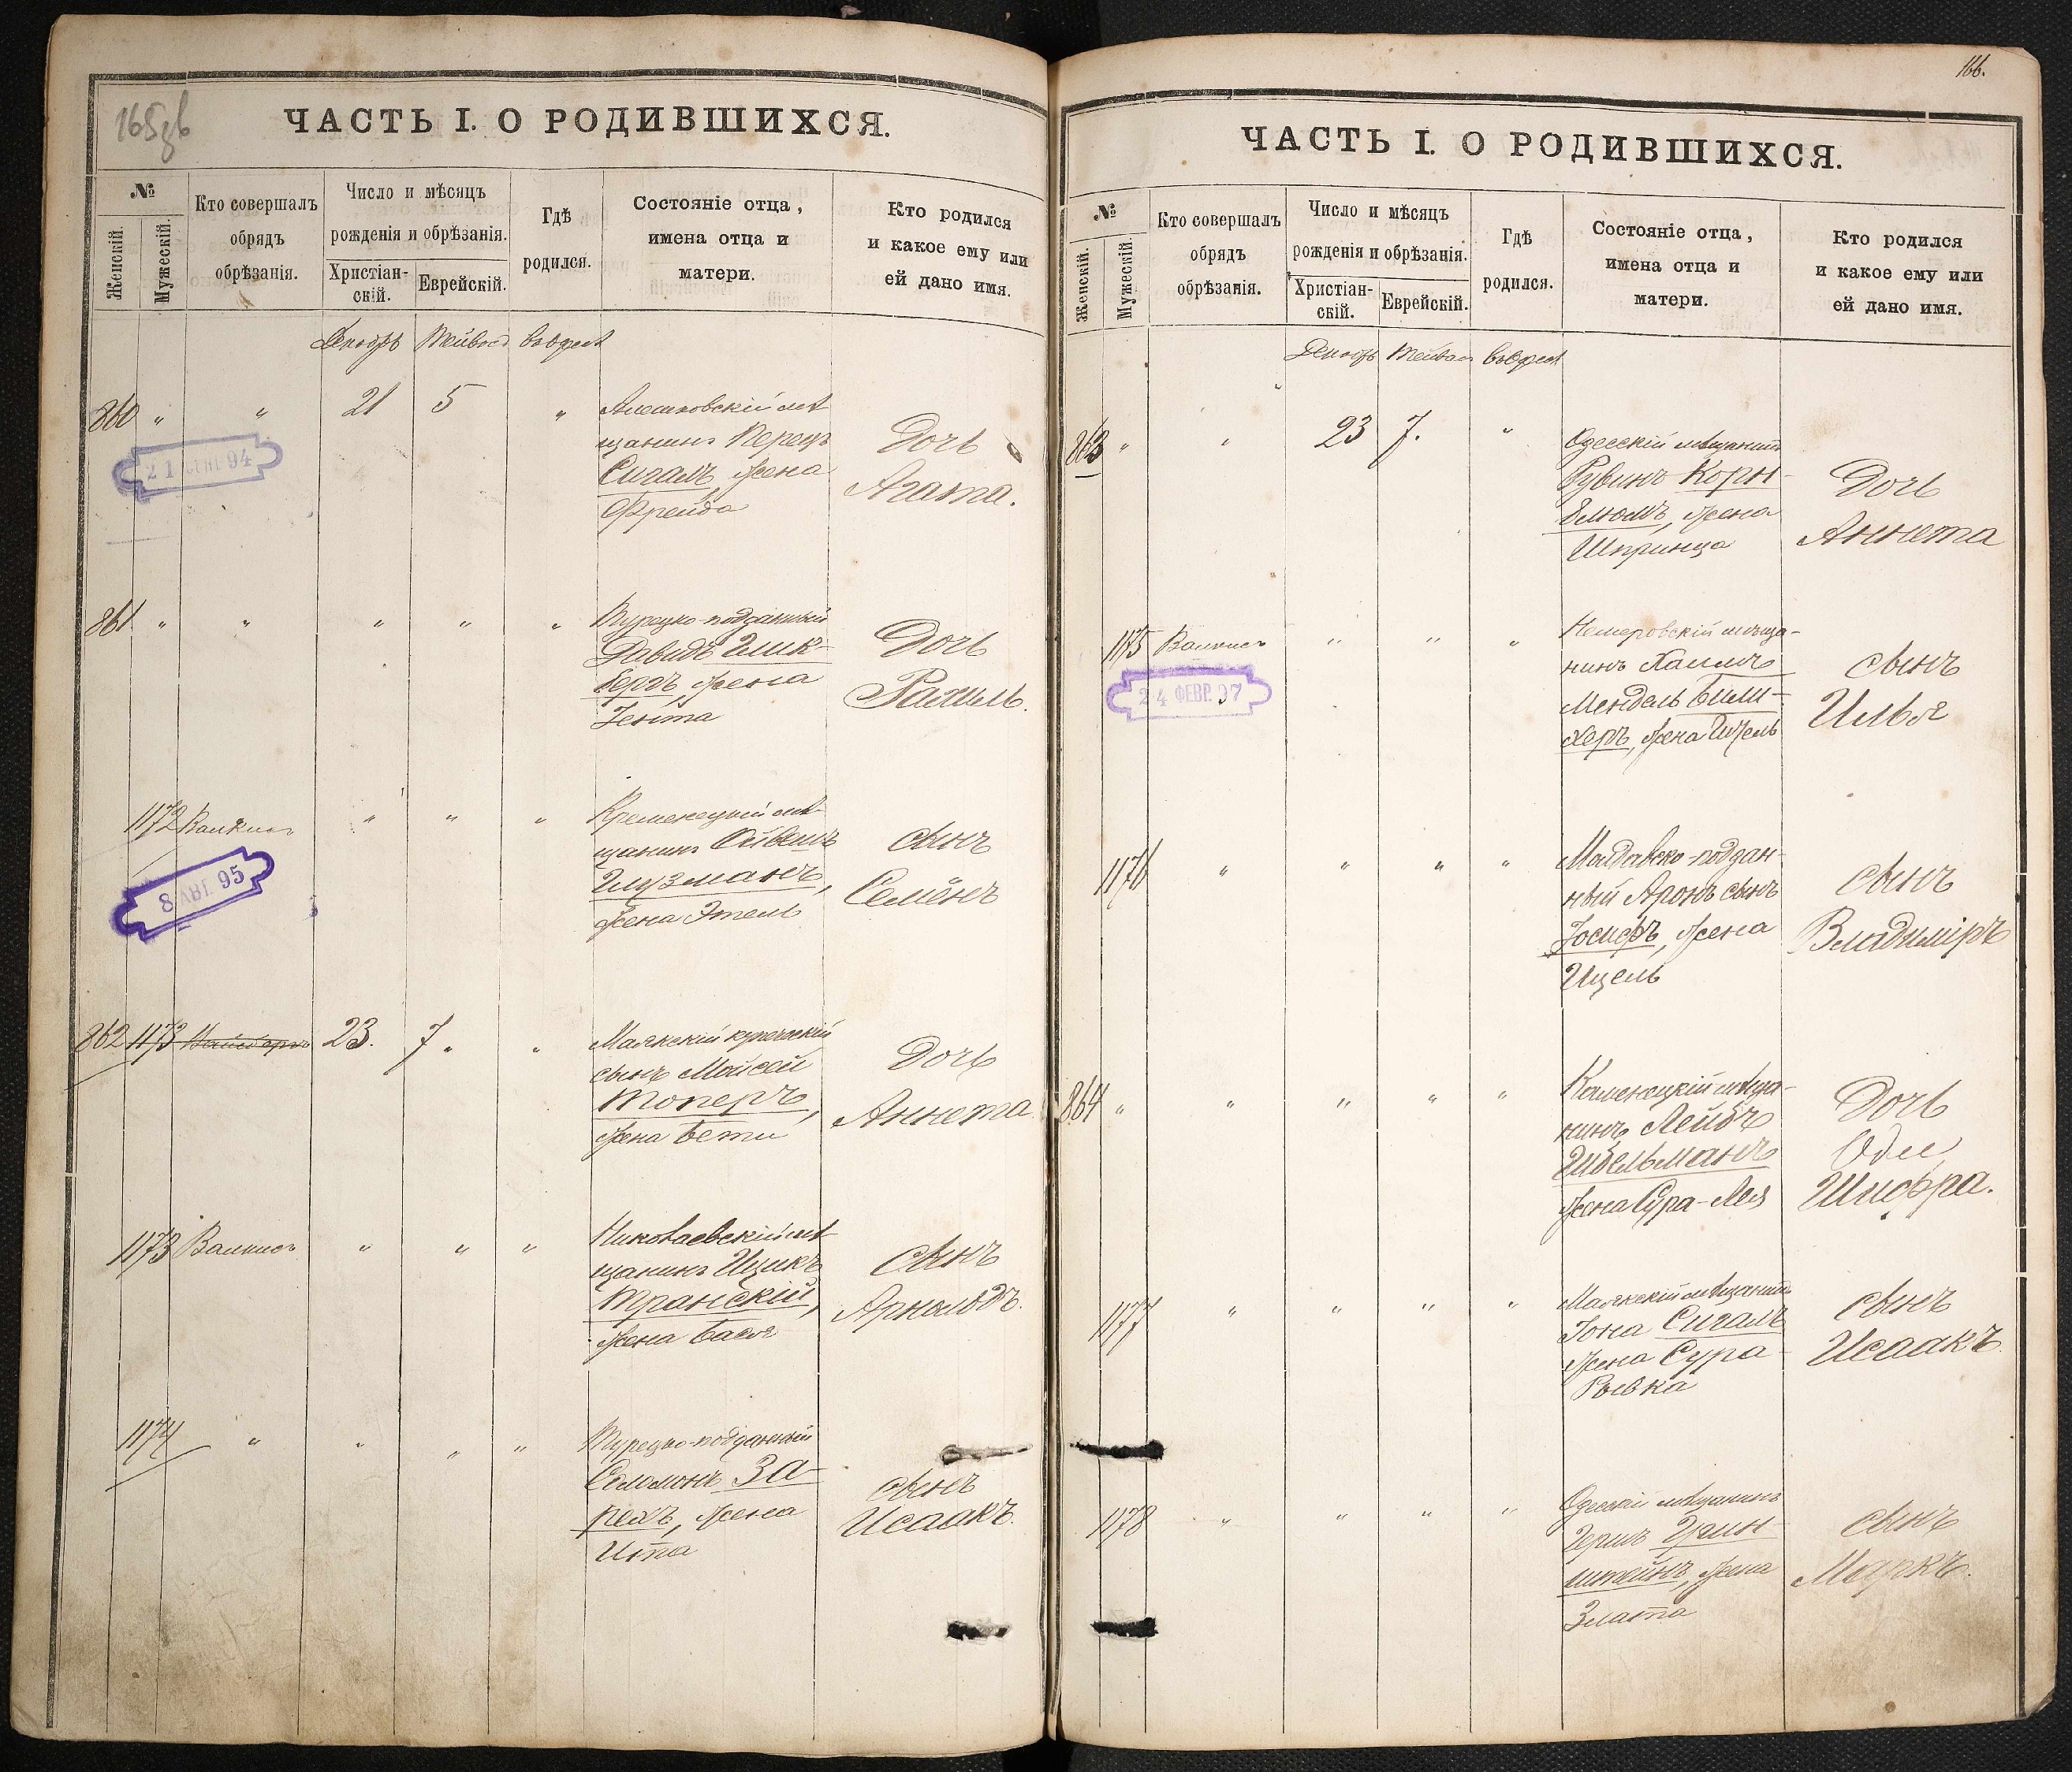 165 зв
ЧАСТЬ I. О РОДИВШИХСЯ.
№
Женскій.
Мужескій.
Кто совершалъ
обрядъ
обрѣзанія.
Число и мѣсяцъ
рожденія и обрѣзанія.
Христіан-
скій.
Еврейскій.
Гдѣ
родился.
Состояніе отца,
имена отца и
матери.
Кто родился
и какое ему или
ей дано имя.
Декабрь Тейвосъ въ Одессѣ
860 " " 21 5 "
Алешковскій мѣ-
щанинъ Перецъ
Сигалъ, жена
Фрейда
Дочь
Агата.
861 " " " " "
Турецко-подданный
Давидъ Глик-
бергъ, жена
Зента
Дочь
Рахиль.
1172 " " "
Кременецкій мѣ-
щанинъ
Глузманъ,
жена Этель
сынъ
Семёнъ
8 АВГ. 95
862 1173 23. 7 " "
Маякскій купеческій
сынъ Мойсей
Топеръ,
жена Бети
Дочь
Аннета
1173 " " "
Николаевскій мѣ-
щанинъ Ицикъ
Транскій,
жена Бася
сынъ
Арнольдъ.
1174 " " " "
Турецко-подданный
Соломонъ За-
рехъ, жена
Ита
сынъ
Исаакъ.
166.
ЧАСТЬ I. О РОДИВШИХСЯ.
№
Женскій.
Мужескій.
Кто совершалъ
обрядъ
обрѣзанія.
Число и мѣсяцъ
рожденія и обрѣзанія.
Христіан-
скій.
Еврейскій.
Гдѣ
родился.
Состояніе отца,
имена отца и
матери.
Кто родился
и какое ему или
ей дано имя.
Декабрь Тейвосъ въ Одессѣ
863 " " 23 7. "
Одесскій мѣщанинъ
Рувинъ Корн-
блюмъ, жена
Шпринца
Дочь
Аннета
1175 " " "
Немеровскій мѣща-
нинъ Хаимъ
Мендель
жена
сынъ
Илья
24 ФЕВР. 97
1176 " " " "
Молдавско-поддан-
ный Аронъ сынъ
Іосифъ, жена
Ицель
сынъ
Владиміръ
864 " " " " "
Каменецкій мѣща-
нинъ Лейбъ
жена Сура-Лея
Дочь
Шифра.
1177 " " " "
Маякскій мѣщанинъ
Іона Сигалъ
жена Сура-
Ривка
сынъ
Исаакъ.
1178 " " " "
Одесскій мѣщанинъ
Гершъ Грин-
штейнъ, жена
Злата
сынъ
Маркъ.